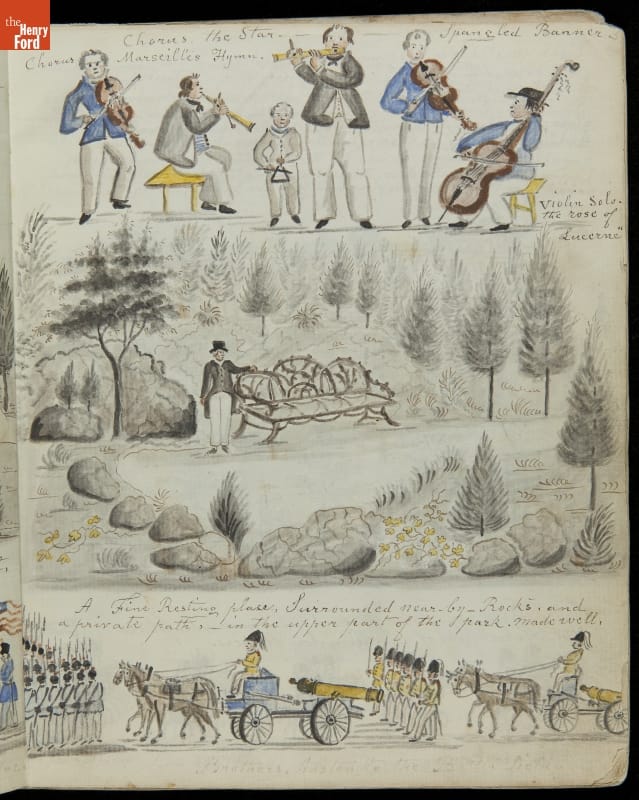 the
Henry
Ford
Chorus, the Star - Spangled Banner -
Chorus Marseilles Hymn.
Violin Solo.
the rose of
Lucerne"
A Fine Resting place, Surrounded near-by-Rocks, and
a private path, - in the upper part of the park. made well.